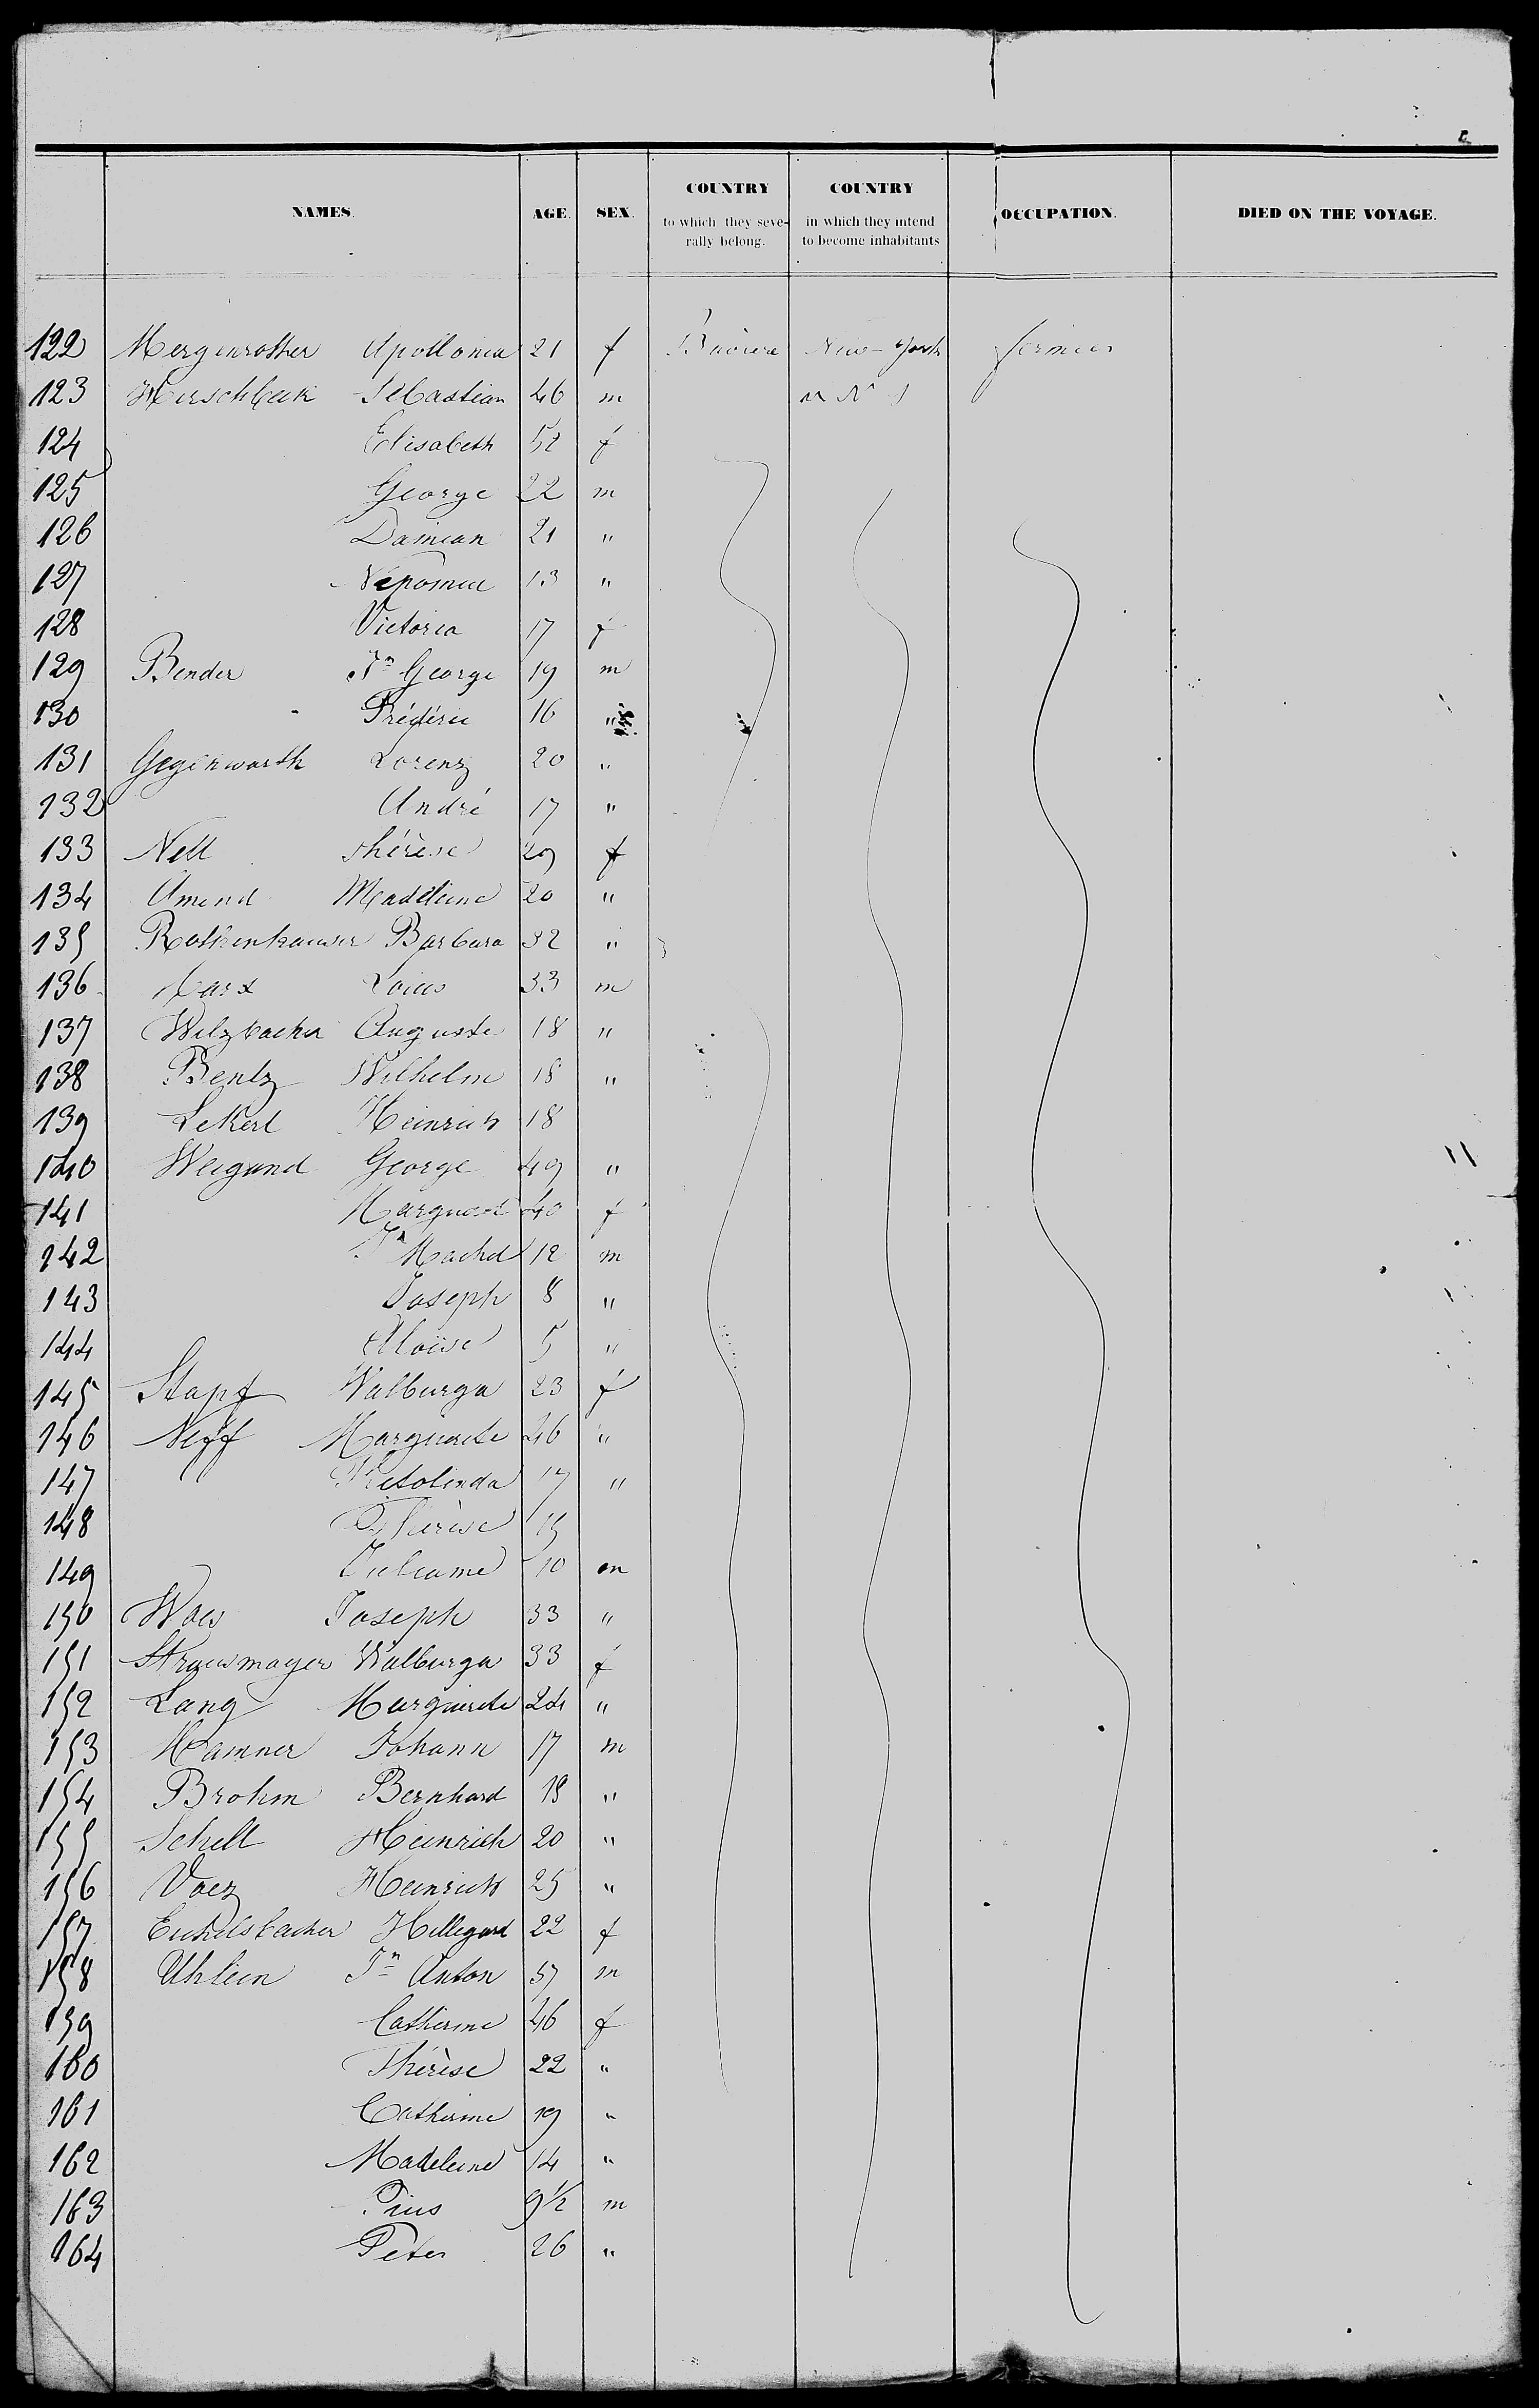 NAMES. AGE. SEX. COUNTRY to which they seve-rally belong. COUNTRY in which they intend to become inhabitants OCCUPATION. DIED ON THE VOYAGE.
122 Mergenrother Apollonia 21 f Bavière New-York fermier
123 Hirschbeck Sebastian 46 m
124 Elisabeth 52 f
125 George 22 m
126 Damian 21 "
127 13 "
128 Victoria 17 f
129 Bender Jn George 19 m
130 Frédéric 16 "
131 Gegenwarth Lorenz 20 "
132 André 17 "
133 Nell Thérèse 29 f
134 Amend Madeleine 20 "
135 Rothenhauser Barbara 32 "
136 Marx Louis 33 m
137 Welzbacher Auguste 18 "
138 Bentz Wilhelm 18 "
139 Lekert Heinrich 18
140 Weigand George 49 "
141 40 f
142 Jn 12 m
143 Joseph 8 "
144 Aloïse 5 "
145 Stapf Walburga 23 f
146 Neff Marguerite 46 "
147 17 "
148 Thérèse 15
149 10 m
150 Joseph 33 "
151 Strausmayer Walburga 33 f
152 Lang Marguerite 24 "
153 Hamner Johann 17 m
154 Brohm Bernhard 18 "
155 Schell Heinrich 20 "
156 Voez Heinrich 25 "
157 Eichelsbacher Hillegard 22 f
158 Uhlein Jn Anton 57 m
159 Catherine 46 f
160 Thérèse 22 "
161 Catherine 19 "
162 Madeleine 14 "
163 Pius 9½ m
164 Peter 26 "